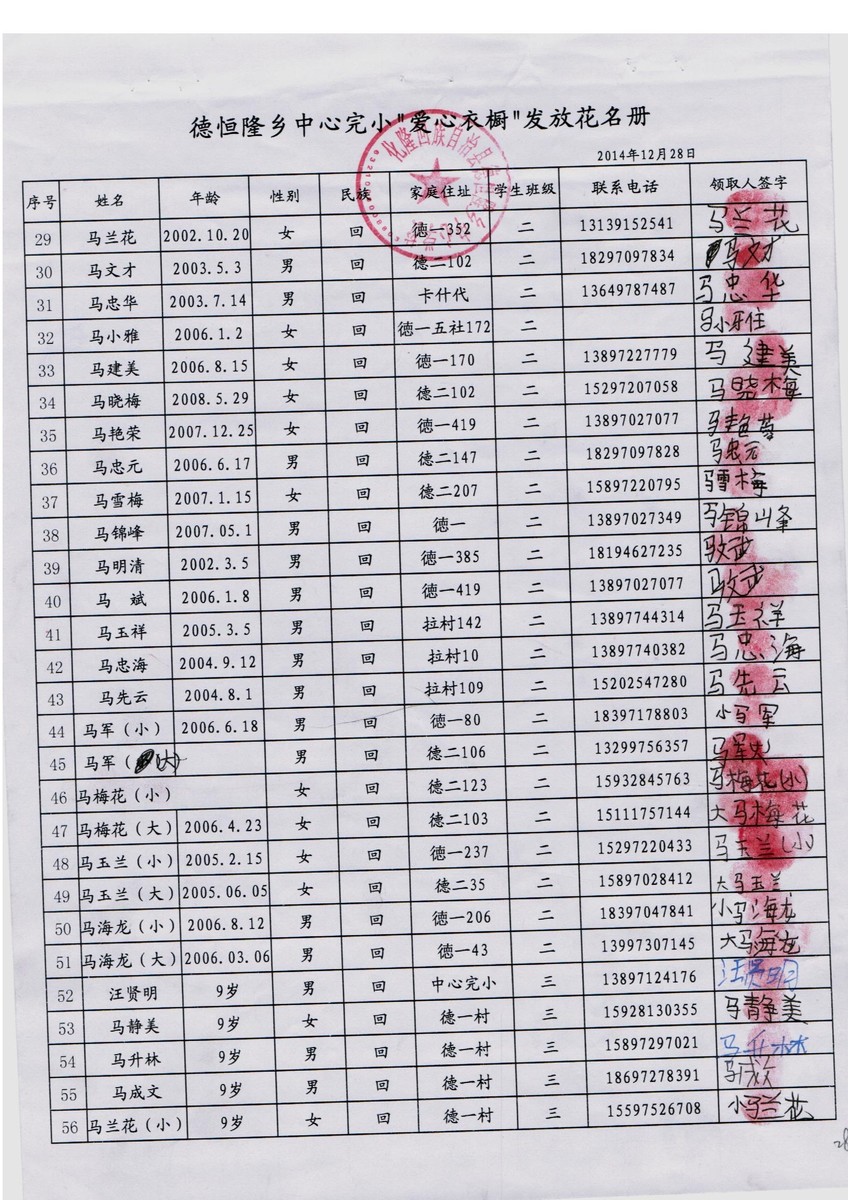 德恒隆乡中心完小"爱心衣橱"发放花名册
2014年12月28日
序号 姓名 年龄 性别 民族 家庭住址 学生班级 联系电话 领取人签字
29 马兰花 2002.10.20 女 回 德一352 二 13139152541 马兰花
30 马文才 2003.5.3 男 回 德二102 二 18297097834 马文才
31 马忠华 2003.7.14 男 回 卡什代 二 13649787487 马忠华
32 马小雅 2006.1.2 女 回 德一五社172 二 马小
33 马建美 2006.8.15 女 回 德一170 二 13897227779 马建美
34 马晓梅 2008.5.29 女 回 德二102 二 15297207058 马晓梅
35 马艳荣 2007.12.25 女 回 德一419 二 13897027077 马艳
36 马忠元 2006.6.17 男 回 德二147 二 18297097828 马忠元
37 马雪梅 2007.1.15 女 回 德二207 二 15897220795 马雪梅
38 马锦峰 2007.05.1 男 回 德一 二 13897027349 马锦峰
39 马明清 2002.3.5 男 回 德一385 二 18194627235
40 马 斌 2006.1.8 男 回 德一419 二 13897027077
41 马玉祥 2005.3.5 男 回 拉村142 二 13897744314 马玉祥
42 马忠海 2004.9.12 男 回 拉村10 二 13897740382 马忠海
43 马先云 2004.8.1 男 回 拉村109 二 15202547280 马先云
44 马军（小） 2006.6.18 男 回 德一80 二 18397178803 小马军
45 马军（大） 男 回 德二106 二 13299756357 马军
46 马梅花（小） 女 回 德二123 二 15932845763 马梅花(小)
47 马梅花（大） 2006.4.23 女 回 德二103 二 15111757144 大马梅花
48 马玉兰（小） 2005.2.15 女 回 德一237 二 15297220433 马玉兰(小)
49 马玉兰（大） 2005.06.05 女 回 德二35 二 15897028412 大马玉兰
50 马海龙（小） 2006.8.12 男 回 德一206 二 18397047841 小马海龙
51 马海龙（大） 2006.03.06 男 回 德一43 二 13997307145 大马海龙
52 汪贤明 9岁 男 回 中心完小 三 13897124176 汪贤明
53 马静美 9岁 女 回 德一村 三 15928130355 马静美
54 马升林 9岁 男 回 德一村 三 15897297021 马升林
55 马成文 9岁 男 回 德一村 三 18697278391 马成文
56 马兰花（小） 9岁 女 回 德一村 三 15597526708 小马兰花